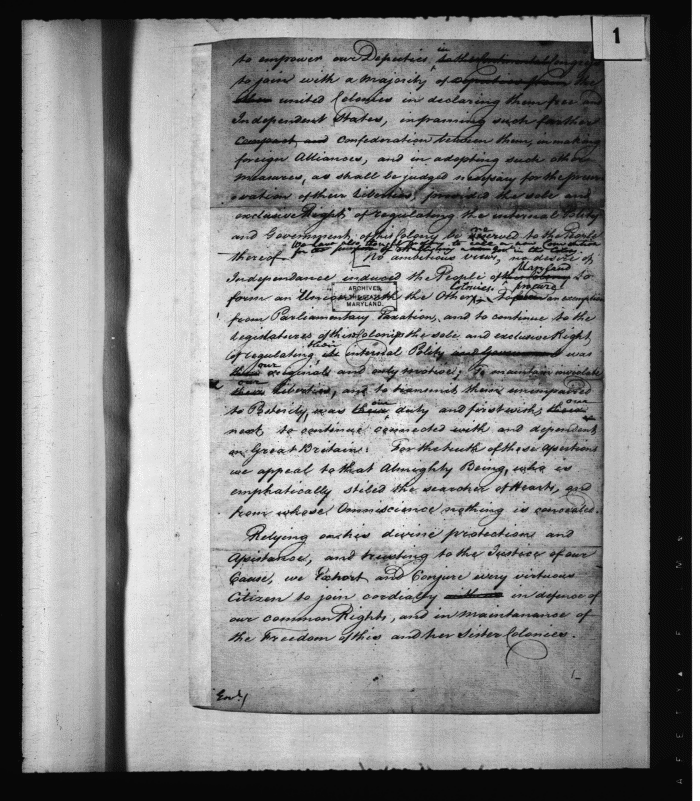 1
to empower our Deputies in to the Continental Congress
to join with a Majority of the
united Colonies in declaring them free and
Independent States, in framing such further
Compact and confederation between them, in making
foreign Alliances, and in adopting such other
measures, as shall be judged necessary for the preser
vation of their Liberties; provided the sole and
exclusive Right, of regulating the internal Polity
and Government of this Colony be reserved to the People
thereof. We have also thought to call a new Convention
for the purpose of establishing a in this Colony.
No ambitious views, no desire of
Independance induced the People of Maryland to
form an Union with the Other Colonies. To procure an exemption
from Parliamentary Taxation, and to continue to the
Legislatures of these Colonies the sole and exclusive Right,
of regulating their internal Polity and Government was
our original and only motive; To maintain inviolate
our Liberties, and to transmit them unimpaired
to Posterity, was our duty and first wish; our
next to continue connected with and dependent
on Great Britain. For the truth of these Assertions
we appeal to that Almighty Being, who is
emphatically stiled the searcher of Hearts, and
from whose Omniscience nothing is concealed.
Relying on his divine protection and
Assistance, and trusting to the Justice of our
Cause, we Exhort and Conjure every virtuous
Citizen to join cordially in defence of
our common Rights, and in maintenance of
the Freedom of this and her Sister Colonies.
ARCHIVES
MARYLAND.